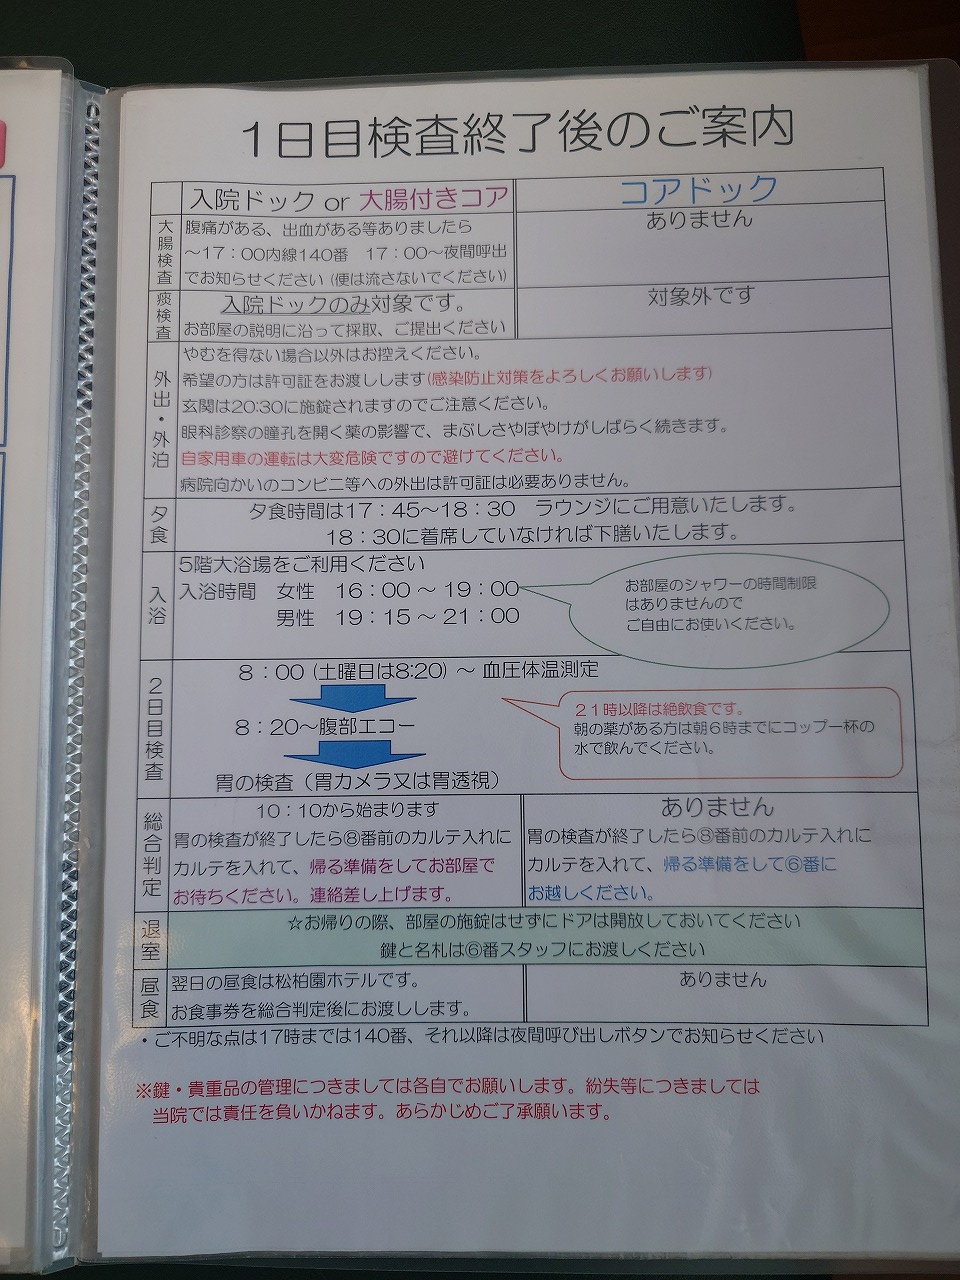 1日目検査終了後のご案内
入院ドック or 大腸付きコア
コアドック
大腸検査
腹痛がある、出血がある等ありましたら
～17：00内線140番　17：00～夜間呼出
でお知らせください（便は流さないでください）
ありません
痰検査
入院ドックのみ対象です。
お部屋の説明に沿って採取、ご提出ください
対象外です
外出・外泊
やむを得ない場合以外はお控えください。
希望の方は許可証をお渡しします（感染防止対策をよろしくお願いします）
玄関は20:30に施錠されますのでご注意ください。
眼科診察の瞳孔を開く薬の影響で、まぶしさやぼやけがしばらく続きます。
自家用車の運転は大変危険ですので避けてください。
病院向かいのコンビニ等への外出は許可証は必要ありません。
夕食
夕食時間は17：45～18：30　ラウンジにご用意いたします。
18：30に着席していなければ下膳いたします。
入浴
5階大浴場をご利用ください
入浴時間　女性　16：00 ～ 19：00
男性　19：15 ～ 21：00
お部屋のシャワーの時間制限
はありませんので
ご自由にお使いください。
2日目検査
8：00（土曜日は8:20）～ 血圧体温測定
8：20～腹部エコー
胃の検査（胃カメラ又は胃透視）
21時以降は絶飲食です。
朝の薬がある方は朝6時までにコップ一杯の
水で飲んでください。
総合判定
10：10から始まります
胃の検査が終了したら⑧番前のカルテ入れに
カルテを入れて、帰る準備をしてお部屋で
お待ちください。連絡差し上げます。
ありません
胃の検査が終了したら⑧番前のカルテ入れに
カルテを入れて、帰る準備をして⑥番に
お越しください。
退室
☆お帰りの際、部屋の施錠はせずにドアは開放しておいてください
鍵と名札は⑥番スタッフにお渡しください
昼食
翌日の昼食は松柏園ホテルです。
お食事券を総合判定後にお渡しします。
ありません
・ご不明な点は17時までは140番、それ以降は夜間呼び出しボタンでお知らせください
※鍵・貴重品の管理につきましては各自でお願いします。紛失等につきましては
当院では責任を負いかねます。あらかじめご了承願います。